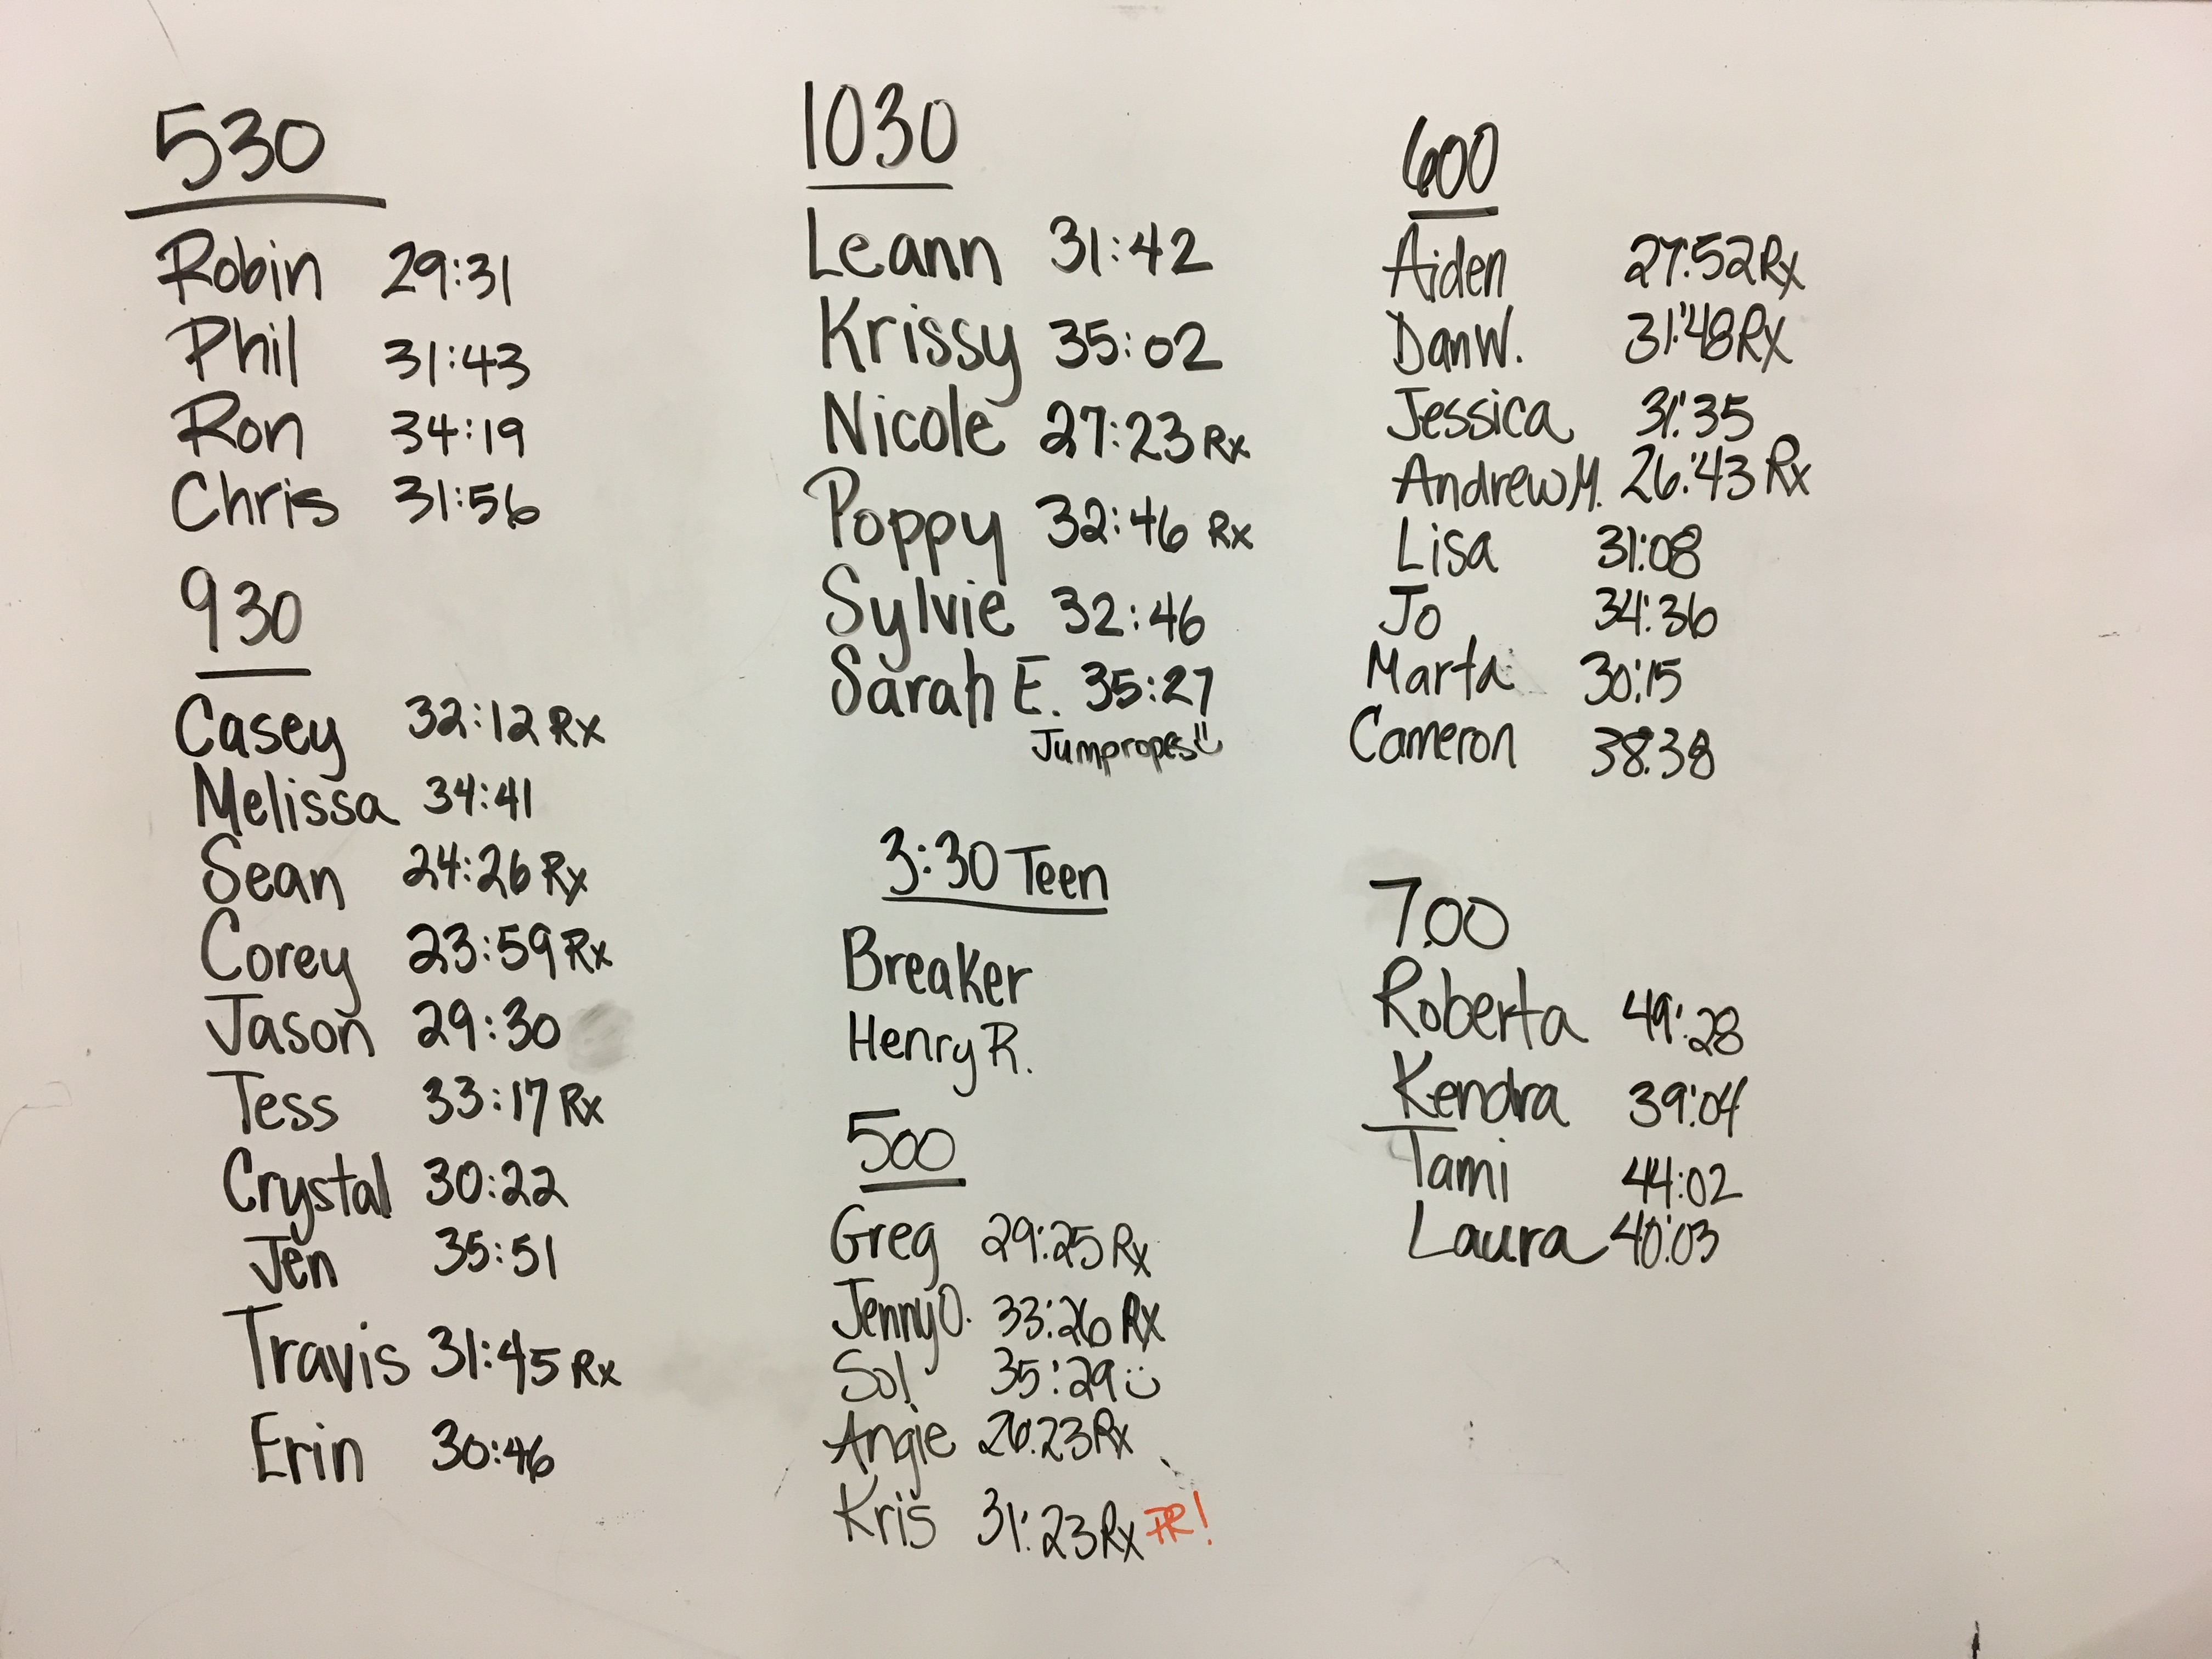 530
Robin 29:31
Phil 31:43
Ron 34:19
Chris 31:56
930
Casey 32:12 Rx
Melissa 34:41
Sean 24:26 Rx
Corey 23:59 Rx
Jason 29:30
Tess 33:17 Rx
Crystal 30:22
Jen 35:51
Travis 31:45 Rx
Erin 30:46
1030
Leann 31:42
Krissy 35:02
Nicole 27:23 Rx
Poppy 32:46 Rx
Sylvie 32:46
Sarah E. 35:27
Jumpropes
3:30 Teen
Breaker
Henry R.
500
Greg 29:25 Rx
Jenny O. 33:26 Rx
Sol 35:29
Angie 26:23 Rx
Kris 31:23 Rx PR!
600
Aiden 27:52 Rx
Dan W. 31:48 Rx
Jessica 31:35
Andrew M. 26:43 Rx
Lisa 31:08
Jo 34:36
Marta 30:15
Cameron 38:38
7:00
Roberta 49:28
Kendra 39:04
Tami 44:02
Laura 40:03